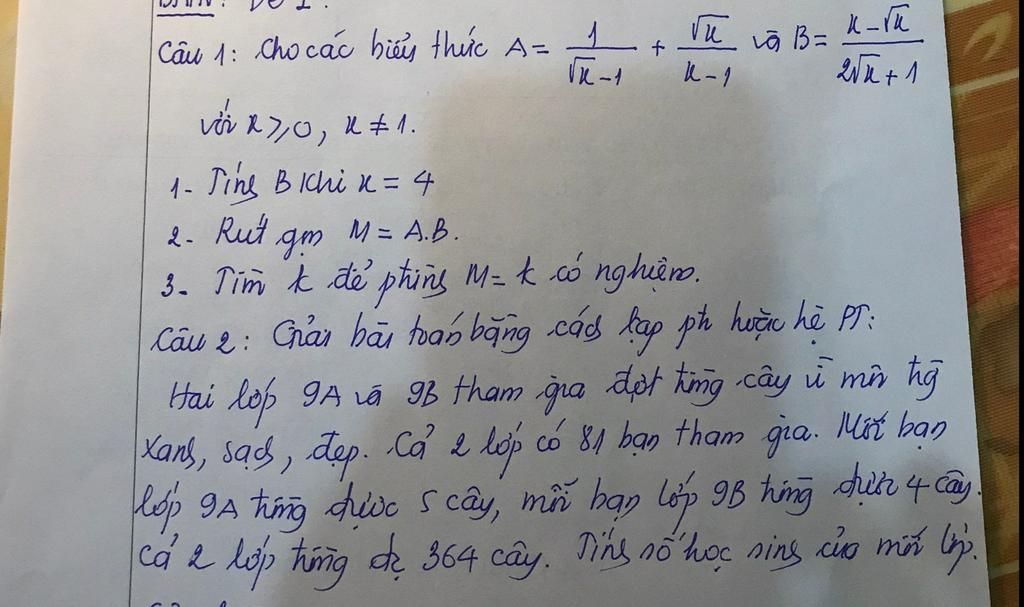 Câu 1: Cho các biểu thức A = 1/(√x - 1) + √x/(x - 1) và B = (x - √x)/(2√x + 1)
với x ⩾ 0, x ≠ 1.
1- Tính B khi x = 4
2- Rút gọn M = A.B.
3- Tìm k để phtrình M = k có nghiệm.
Câu 2: Giải bài toán bằng cách lập pt hoặc hệ PT:
Hai lớp 9A và 9B tham gia đợt trồng cây vì môi trg
xanh, sạch, đẹp. Cả 2 lớp có 81 bạn tham gia. Mỗi bạn
lớp 9A trồng được 5 cây, mỗi bạn lớp 9B trồng được 4 cây.
Cả 2 lớp trồng đc 364 cây. Tính số học sinh của mỗi lớp.